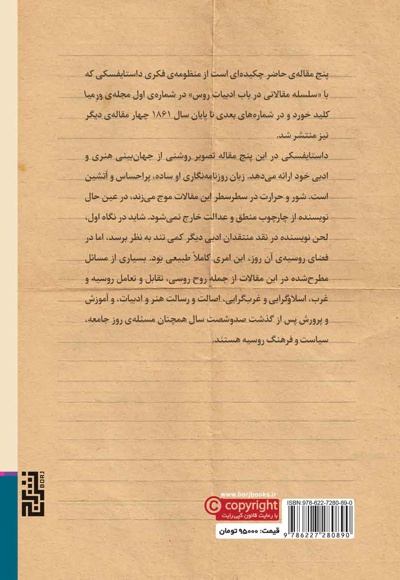 پنج مقاله‌ی حاضر چکیده‌ای است از منظومه‌ی فکری داستایفسکی که
با «سلسله مقالاتی در باب ادبیات روس» در شماره‌ی اول مجله‌ی ورمیا
کلید خورد و در شماره‌های بعدی تا پایان سال ۱۸۶۱ چهار مقاله‌ی دیگر
نیز منتشر شد.
داستایفسکی در این پنج مقاله تصویر روشنی از جهان‌بینی هنری و
ادبی خود ارائه می‌دهد. زبان روزنامه‌نگاری او ساده، پراحساس و آتشین
است. شور و حرارت در سطرسطر این مقالات موج می‌زند، در عین حال
نویسنده از چارچوب منطق و عدالت خارج نمی‌شود. شاید در نگاه اول،
لحن نویسنده در نقد منتقدان ادبی دیگر کمی تند به نظر برسد، اما در
فضای روسیه‌ی آن روز، این امری کاملاً طبیعی بود. بسیاری از مسائل
مطرح‌شده در این مقالات از جمله روح روسی، تقابل و تعامل روسیه و
غرب، اسلاوگرایی و غرب‌گرایی، اصالت و رسالت هنر و ادبیات، و آموزش
و پرورش پس از گذشت صدوشصت سال همچنان مسئله‌ی روز جامعه،
سیاست و فرهنگ روسیه هستند.
نشر برج
BORJ
www.borjbooks.ir
© copyright
با رعایت قانون کپی‌رایت
قیمت: ۹۵۰۰۰ تومان
ISBN: 978-622-7280-89-0
9 786227 280890